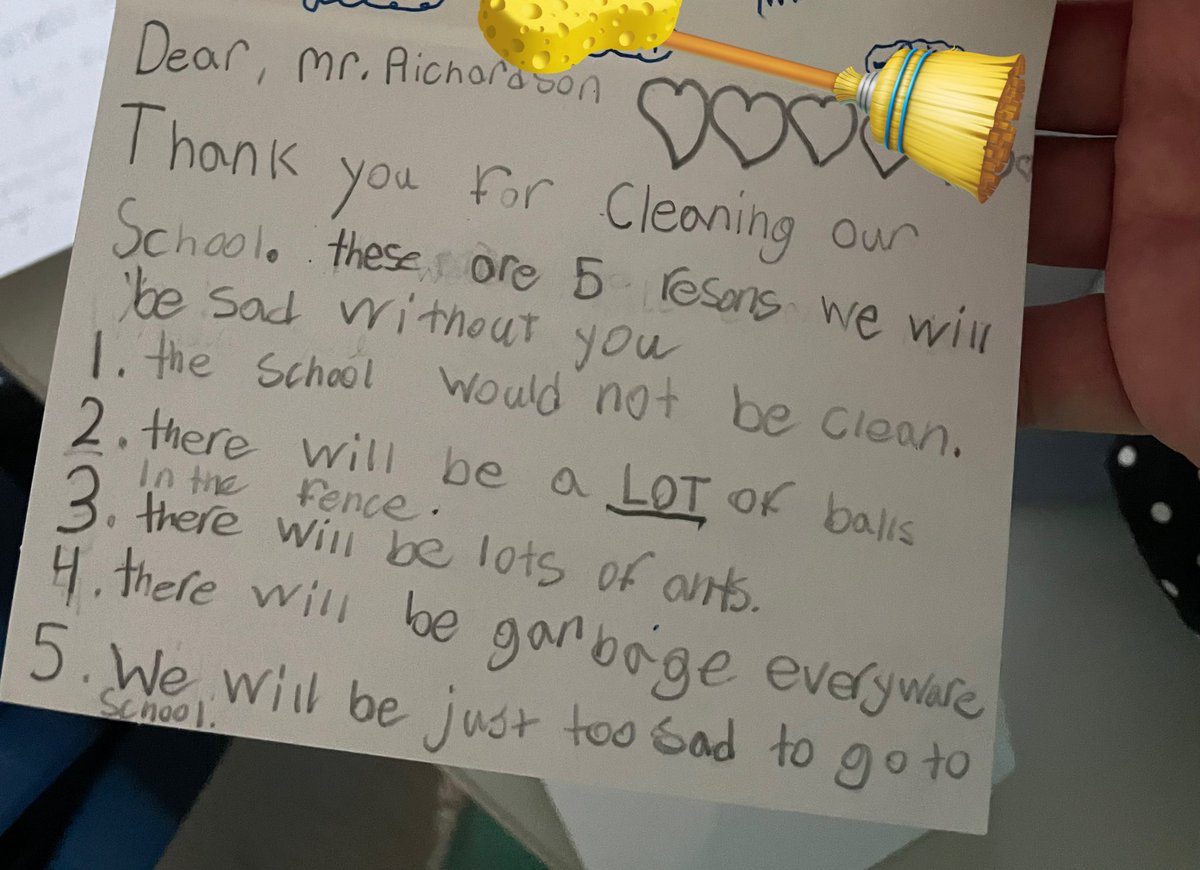 Dear, Mr. Richardson
Thank you for Cleaning our
School. these are 5 resons we will
be sad without you
1. the School would not be clean.
2. there will be a LOT of balls
in the fence.
3. there will be lots of ants.
4. there will be garbage everyware
5. We will be just too sad to go to
School.